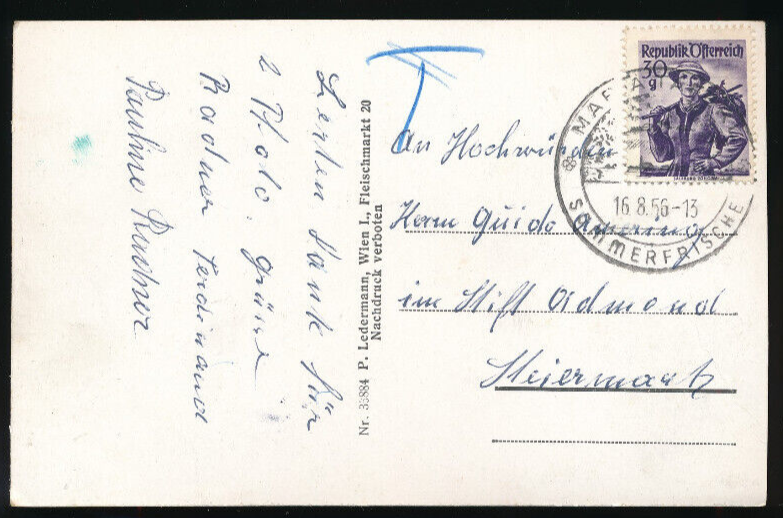 Lerten Dank für
2 Photo. Grüße
Radner Ferdinand
Pauline Radner
Nr. 33884 P. Ledermann, Wien I., Fleischmarkt 20
Nachdruck verboten
Republik Österreich
30
g
MA
16.8.56-13
SOMMERFRISCHE
An Hochwürden
Herrn Guido
im Stift Admond
Steiermark